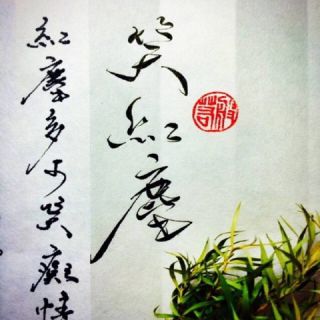 笑紅塵
紅塵多可笑癡情